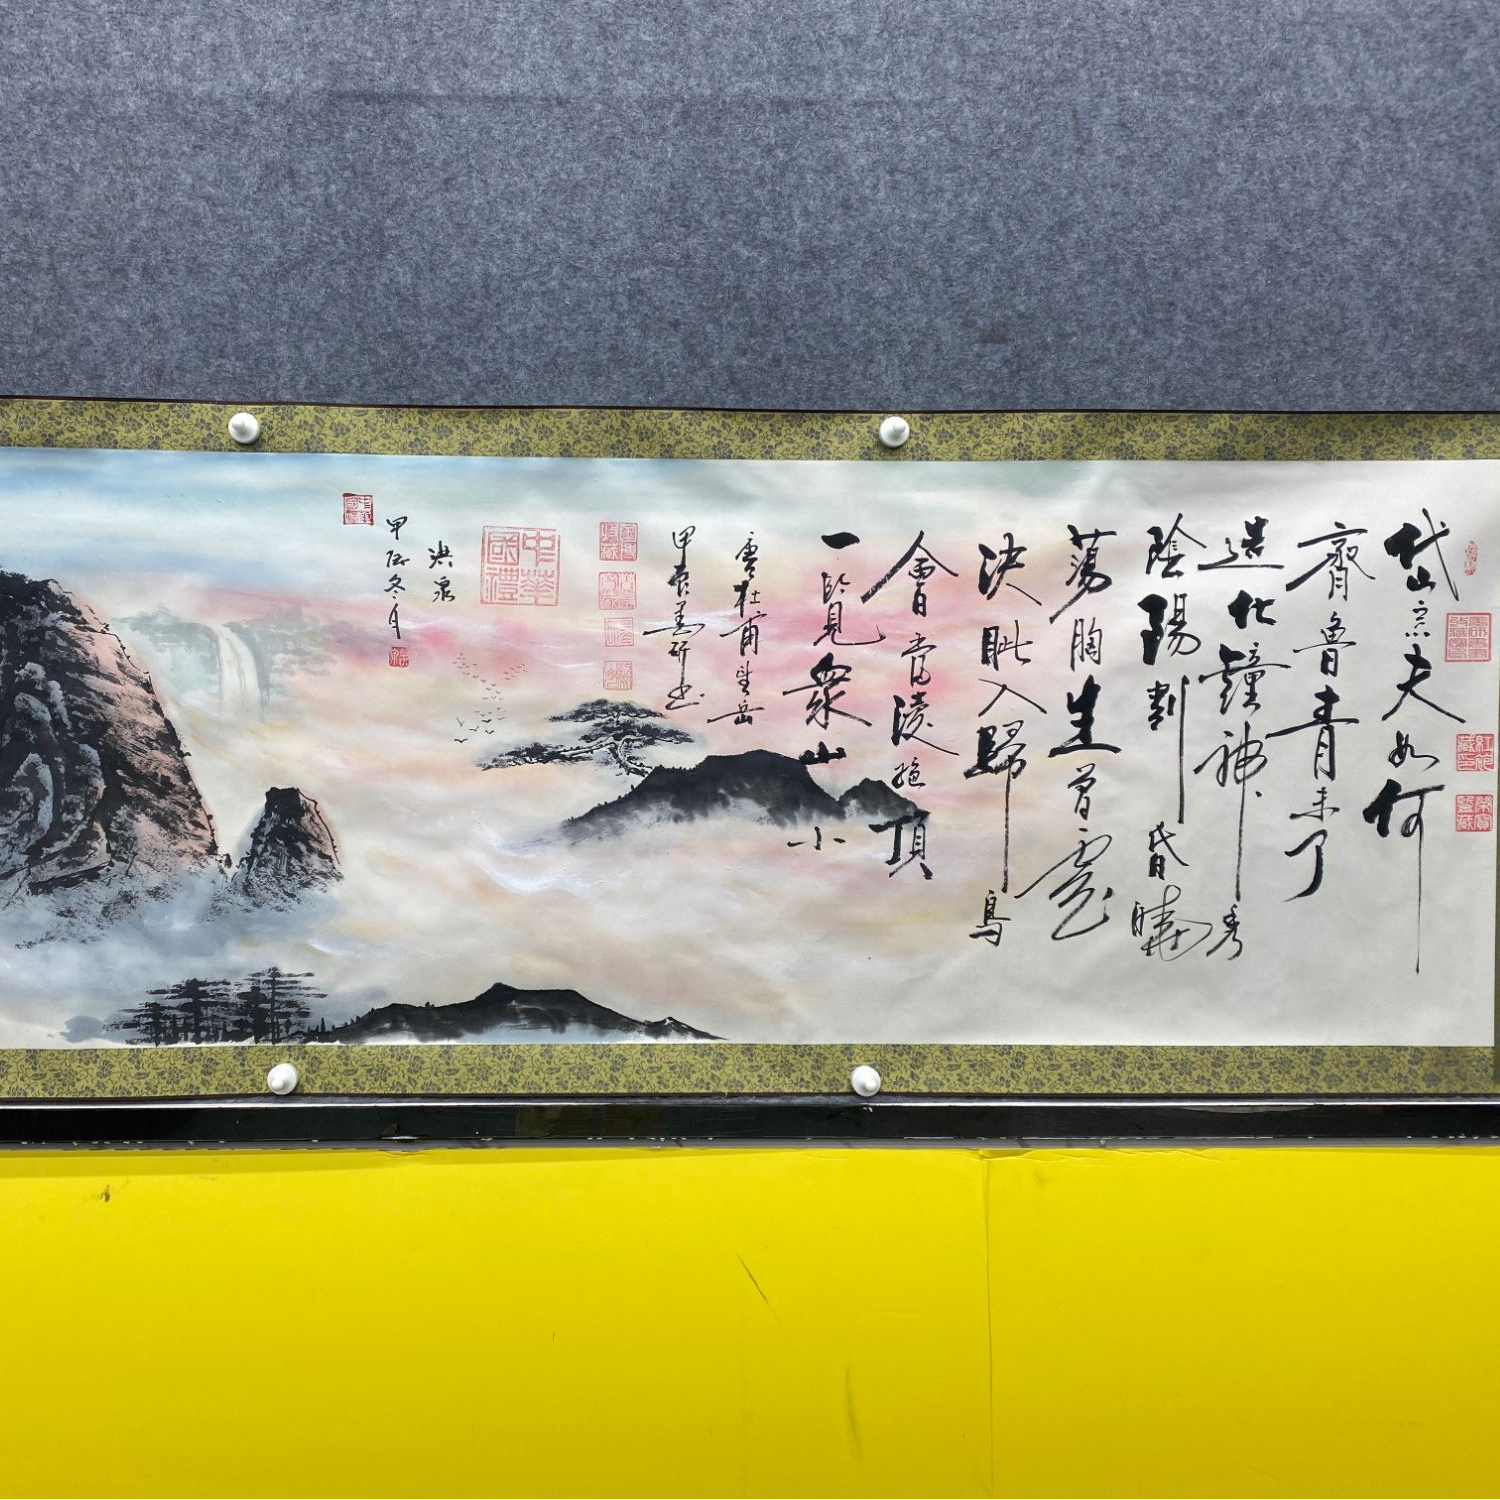 岱宗夫如何
齊魯青未了
造化鐘神秀
陰陽割昏曉
蕩胸生曾雲
決眦入歸鳥
會當淩絕頂
一覽衆山小
唐杜甫望岳
甲辰墨研书
中華國禮
洪泉
甲辰冬月